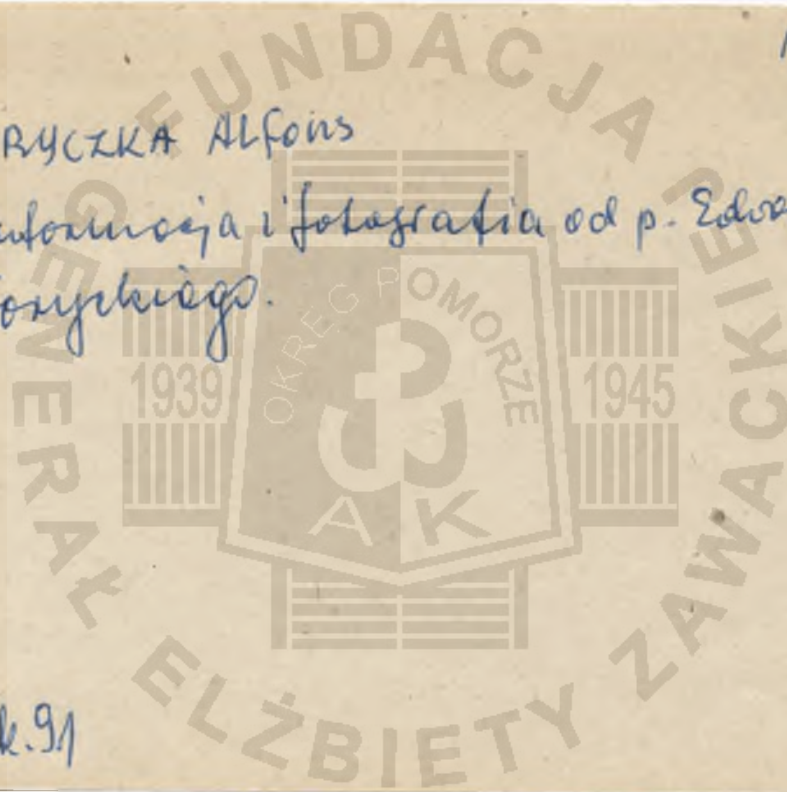 RYCZKA Alfons
informacja i fotografia od p. Edwa
orzyckiego.
k. 91
FUNDACJA
GENERAŁ ELŻBIETY ZAWACKIEJ
OKRĘG POMORZE
1939
1945
AK